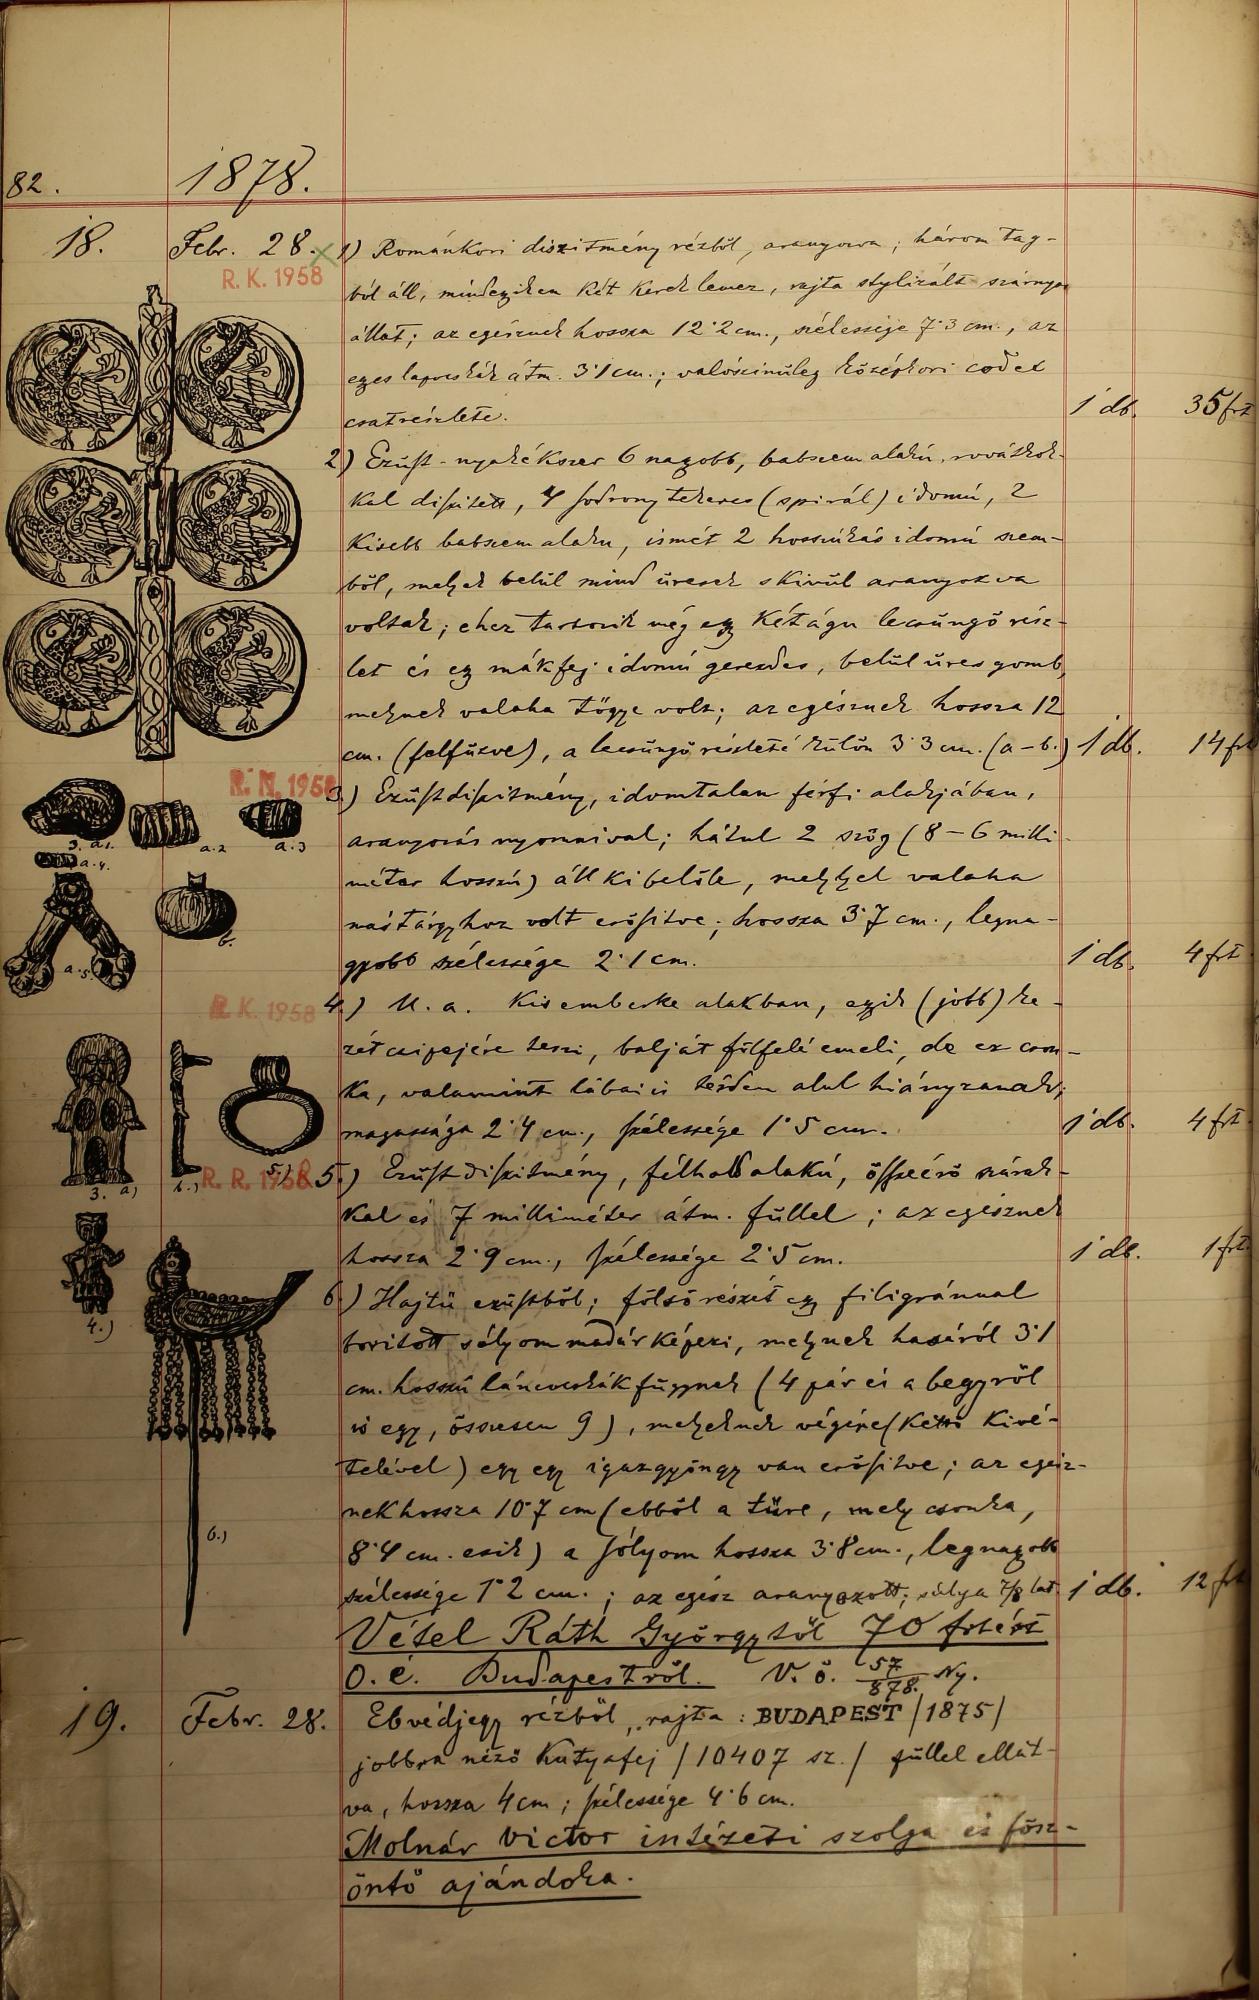 82. 1878.
18. Febr. 28. 1) Románkori diszitmény rézből, aranyozva; három tag-
R. K. 1958
ból áll, mindeziken két kerek lemez, rajta stylizált szárnyas
állat; az egésznek hossza 12·2 cm., szélessége 7·3 cm., az
egyes lapocskák átm. 3·1 cm.; valószinüleg középkori codex
csatrészlete. 1 db. 35 frt
2) Ezüst-nyakékszer 6 nagyobb, babszem alakú, rovátkok-
kal diszitett, 4 sodronytekercs (spirál) idomú, 2
kisebb babszem alaku, ismét 2 hosszúkás idomú szem-
ből, melyek belül mind üresek s kivül aranyozva
voltak; ehez tartozik még egy kétágu lecsüngő rész-
let és egy mákfej idomú gerezdes, belül üres gomb,
melynek valaha tőgye volt; az egésznek hossza 12
cm. (felfüzve), a lecsüngő részleté külön 3·3 cm. (a-b.) 1 db. 14 frt
3) Ezüstdiszitmény, idomtalan férfi alakjában,
aranyozás nyomaival; hátul 2 szög (8-6 milli
méter hosszú) áll ki belőle, melylyel valaha
más tárgyhoz volt erősitve; hossza 3·7 cm., legna-
gyobb szélessége 2·1 cm. 1 db. 4 frt
3. a1. a.2 a.3
a.4.
a.5. b.
R. K. 1958
4.) U. a. Kis emberke alakban, egyik (jobb) ke-
zét csipejére teszi, balját fölfelé emeli, de ez cson-
ka, valamint lábai is térden alul hiányzanak;
magassága 2·4 cm., szélessége 1·5 cm. 1 db. 4 frt
3. a) b.) 5.)
5.) Ezüstdiszitmény, félhold alakú, összeérő szárak-
kal és 7 milliméter átm. füllel; az egésznek
hossza 2·9 cm., szélessége 2·5 cm. 1 db. 1 frt
4.)
6.) Hajtü ezüstből; fölső részét egy filigránnal
boritott sólyom madár képezi, melynek hasáról 3·1
cm. hosszú láncocskák függnek (4 pár és a begyről
is egy, összesen 9), melyeknek végére (kettő kivé-
telével) egy egy igazgyöngy van erősitve; az egész-
nek hossza 10·7 cm (ebből a türe, mely csonka,
6.)
8·4 cm. esik) a sólyom hossza 3·8 cm., legnagyobb
szélessége 1·2 cm.; az egész aranyozott; súlya 7/8 lat 1 db. 12 frt
Vétel Ráth Györgytől 70 frtért
o. é. Budapestről. V. ö. 57/878. Ny.
19. Febr. 28. Ebvédjegy rézből, rajta: BUDAPEST /1875/
jobbra néző kutyafej /10407 sz./ füllel ellát-
va, hossza 4 cm; szélessége 4·6 cm.
Molnár Victor intézeti szolga és fősz-
öntő ajándoka.